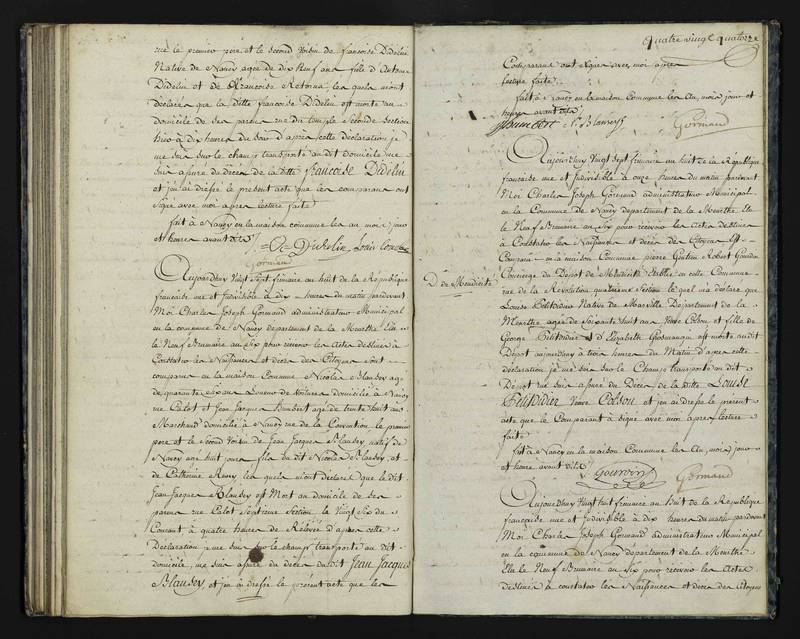 rue le premier pere et le second voisin de francoise Didelin
Native de Nancy agée de dix neuf ans fille d'Antoine
Didelin et de Françoise les quels m'ont
déclarés que la ditte francoise Didelin est morte au
domicile de ses parens rue du temple seconde section
hier à dix heures du soir d'après cette déclaration je
me suis sur le champ transporté au dit domicile me
suis assuré du décès de la ditte françoise Didelin
et j'en ai dressé le present acte que les comparans ont
signé avec moi apres lecture faite
fait à Nancy en la maison commune les an mois jour
et heures avant dits
Didelin Louis
Gormand
Aujourdhuy vingt sept frimaire an huit de la République
française une et Indivisible à dix heures du matin pardevant
Moi Charles Joseph Gormand administrateur Municipal
en la commune de Nancy departement de la Meurthe Elu
le Neuf Brumaire an six pour recevoir les Actes destinés à
Constater les Naissances et deces des Citoyens sont
comparus en la maison Commune Nicolas Blandey agé
de quarante six ans Loueur de voitures domicilié à Nancy
rue Calot et Jean Jacques Humbert agé de trente huit ans
Marchand domicilié à Nancy rue de la Convention le premier
pere et le second voisin de Jean Jacques Blandey natif de
Nancy agé huit jours fils du dit Nicolas Blandey et
de Catherine Remy les quels m'ont déclaré que le dit
Jean Jacques Blandey est Mort au domicile de ses
parens rue Calot Septieme Section le vingt six du
Courant à quatre heures de Relevée d'après cette
Declaration je me suis sur le champ transporté au dit
domicile, me suis assuré du deces du dit Jean Jacques
Blandey et j'en ai dressé le present acte que les
Quatre vingt quatorze
Comparans ont signé avec moi après
lecture faite
fait à Nancy en la maison Commune les an, mois jour et
heures avant dits
Humbert N. Blandey
Gormand
Aujourdhuy vingt sept frimaire an huit de la République
française une et Indivisible à onze heures du matin pardevant
Moi Charles Joseph Gormand administrateur Municipal
en la Commune de Nancy departement de la Meurthe Elu
le Neuf Brumaire an six pour recevoir les Actes destinés
à Constater les Naissances et décès des Citoyens Est
Comparu en la maison Commune pierre Robert Gourdin
Concierge du Dépot de Mendicité établie en cette Commune
D. de Mendicité
rue de la Révolution quatrieme Section le quel m'a déclaré que
Louise Petitdidier Native de Departement de la
Meurthe agée de soixante huit ans Veuve Colson et fille de
George Petitdidier et d'Elizabeth est morte au dit
Dépot aujourdhuy à trois heures du Matin d'après cette
déclaration je me suis sur le Champ transporté au dit
Dépot me suis assuré du Décès de la ditte Louise
Petitdidier Veuve Colson et j'en ai dressé le present
acte que le Comparant à signé avec moi apres lecture
faite
fait à Nancy en la maison Commune les An, mois jour
et heure avant dits
Gourdin
Gormand
Aujourdhuy vingt huit frimaire an huit de la République
françoise une et Indivisible à dix heures du matin pardevant
Moi Charles Joseph Gormand administrateur Municipal
en la commune de Nancy departement de la Meurthe
Elu le Neuf Brumaire an six pour recevoir les Actes
destinés à constater les Naissances et deces des Citoyens